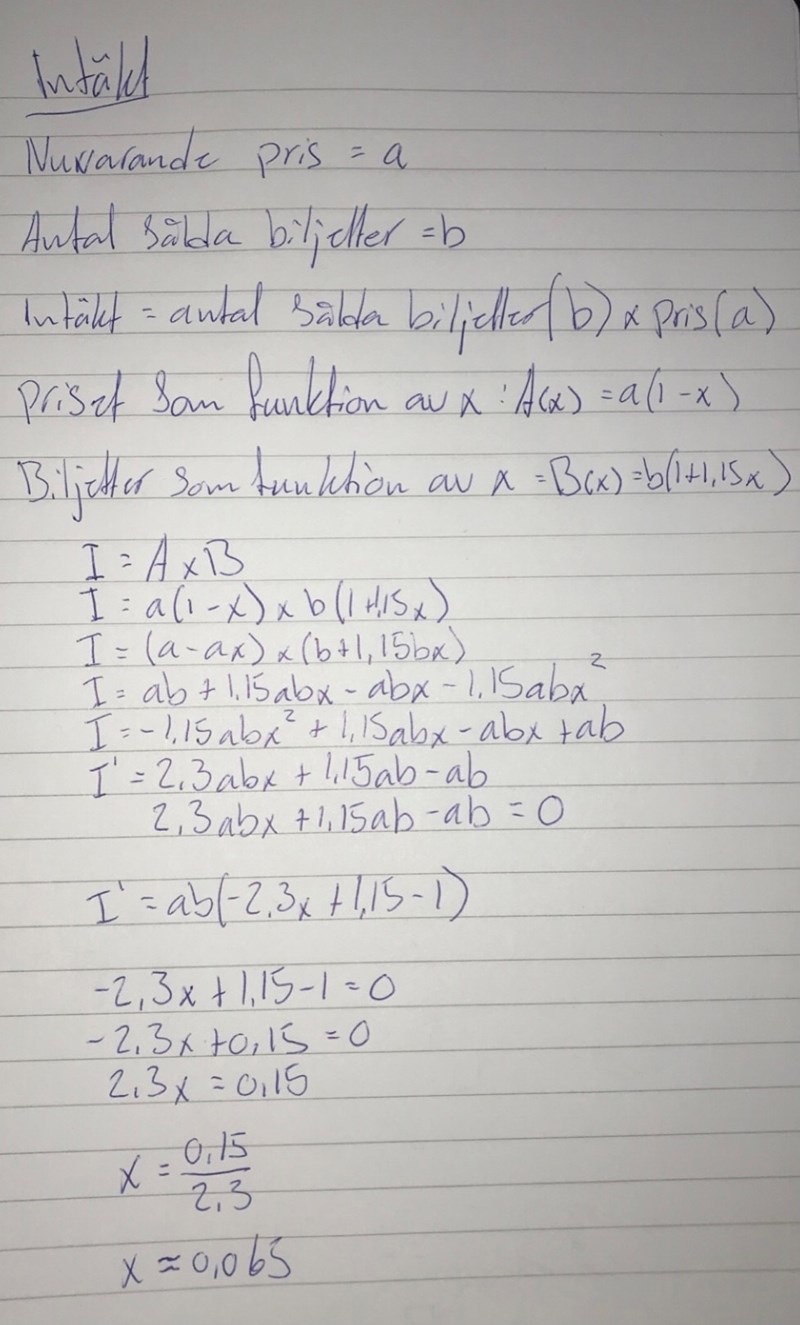 Intäkt
Nuvarande pris = a
Antal sålda biljetter = b
Intäkt = antal sålda biljetter(b) x pris(a)
Priset som funktion av x : A(x) = a(1-x)
Biljetter som funktion av x = B(x) = b(1+1,15x)
I = A x B
I = a(1-x) x b(1+1,15x)
I = (a-ax) x (b+1,15bx)
I = ab + 1,15abx - abx - 1,15abx²
I = -1,15abx² + 1,15abx - abx + ab
I' = 2,3abx + 1,15ab - ab
2,3abx + 1,15ab - ab = 0
I' = ab(-2,3x + 1,15 - 1)
-2,3x + 1,15 - 1 = 0
-2,3x + 0,15 = 0
2,3x = 0,15
x = 0,15/2,3
x ≈ 0,065